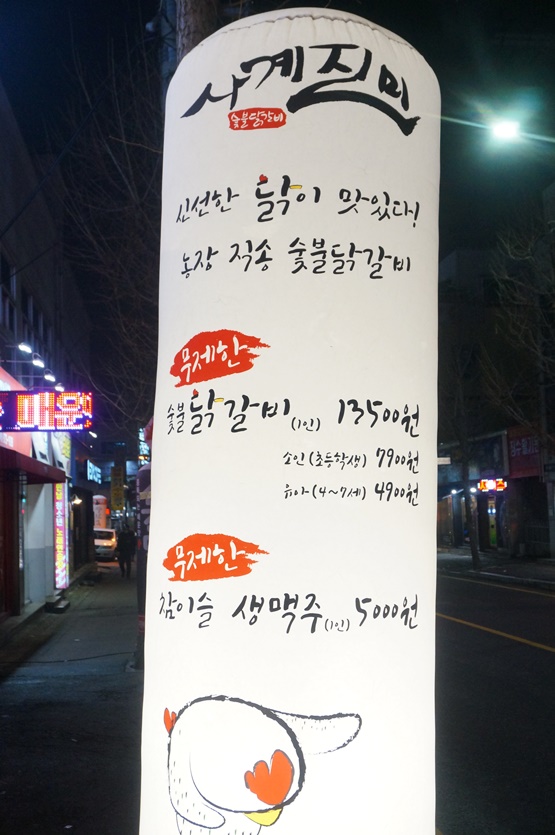 사계진미
숯불닭갈비
신선한 닭이 맛있다!
농장 직송 숯불닭갈비
무제한
숯불닭갈비(1인) 13500원
소인(초등학생) 7900원
유아(4~7세) 4900원
무제한
참이슬 생맥주(1인) 5000원
매운